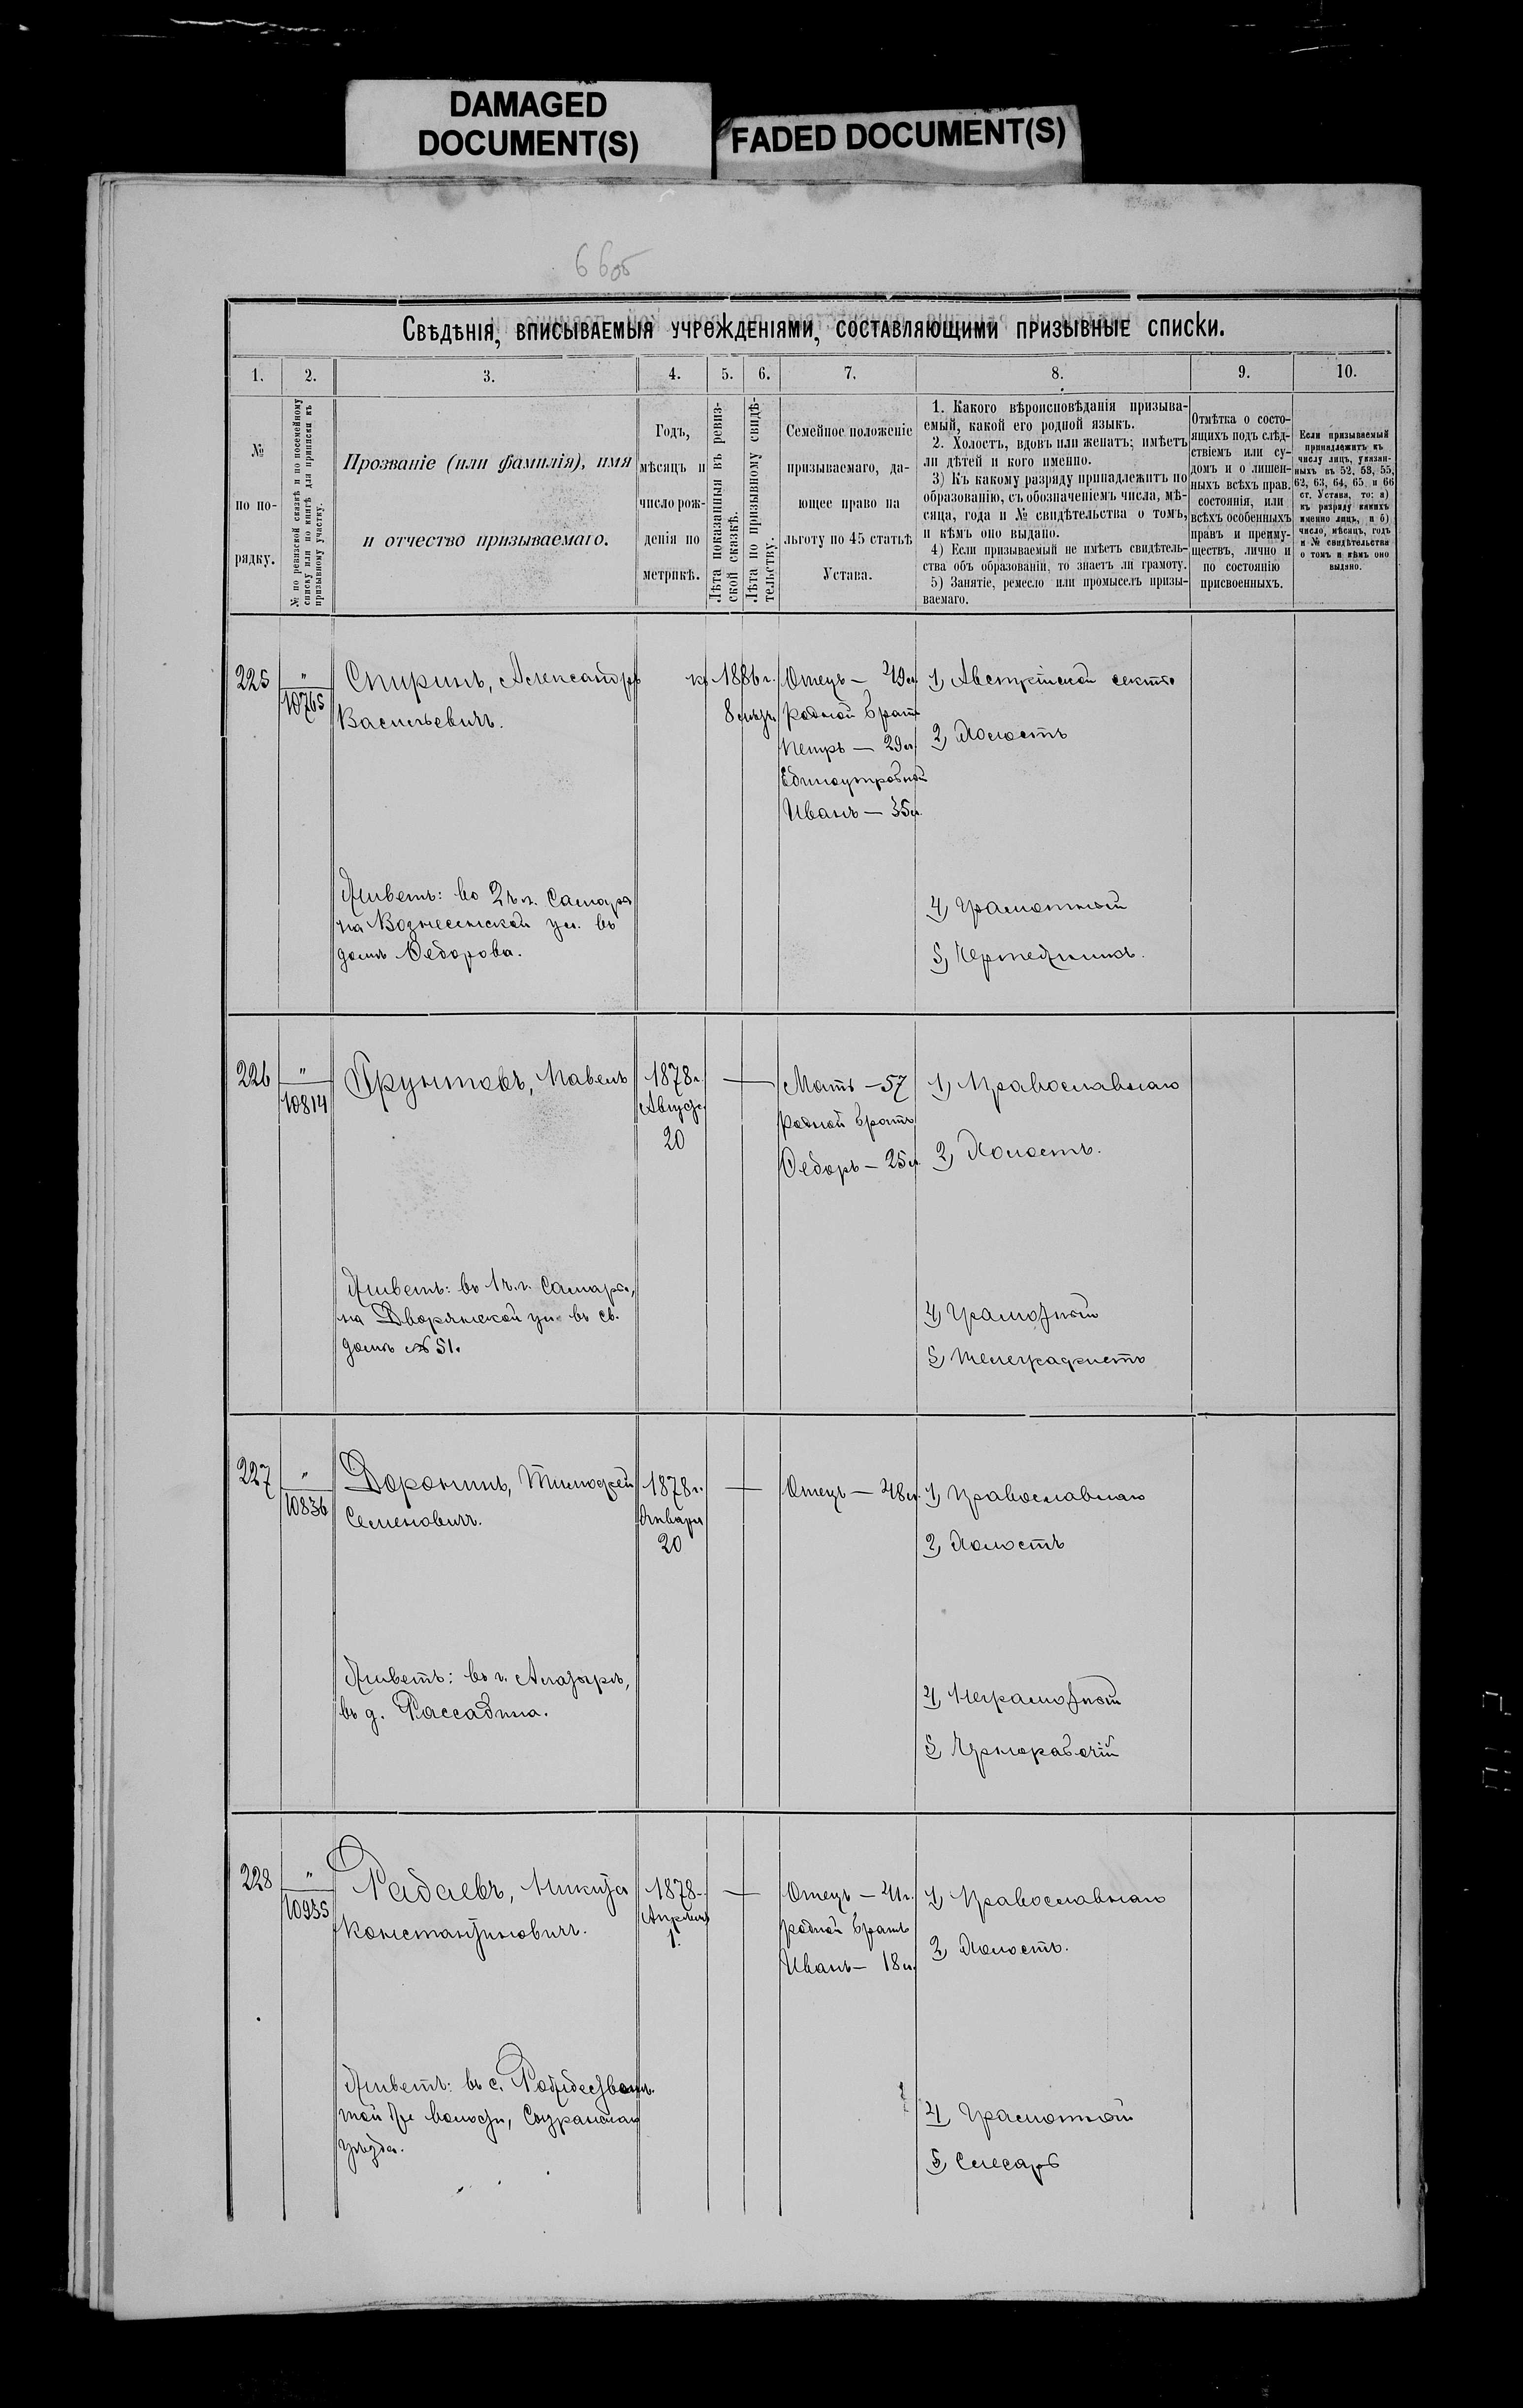 DAMAGED
DOCUMENT(S)
FADED DOCUMENT(S)
Свѣдѣнія, вписываемыя учрежденіями, составляющими призывные списки.
1.
2.
3.
4.
5.
6.
7.
8.
9.
10.
№
по по-
рядку.
№ по ревизской сказкѣ и по посемейному
списку или по книгѣ для приписки къ
призывному участку.
Прозваніе (или фамилія), имя
и отчество призываемаго.
Годъ,
мѣсяцъ и
число рож-
денія по
метрикѣ.
Лѣта показанныя въ ревиз-
ской сказкѣ.
Лѣта по призывному свидѣ-
тельству.
Семейное положеніе
призываемаго, да-
ющее право на
льготу по 45 статьѣ
Устава.
1. Какого вѣроисповѣданія призыва-
емый, какой его родной языкъ.
2. Холостъ, вдовъ или женатъ; имѣетъ
ли дѣтей и кого именно.
3) Къ какому разряду принадлежитъ по
образованію, съ обозначеніемъ числа, мѣ-
сяца, года и № свидѣтельства о томъ,
и кѣмъ оно выдано.
4) Если призываемый не имѣетъ свидѣтель-
ства объ образованіи, то знаетъ ли грамоту.
5) Занятіе, ремесло или промыселъ призы-
ваемаго.
Отмѣтка о состо-
ящихъ подъ слѣд-
ствіемъ или су-
домъ и о лишен-
ныхъ всѣхъ прав.
состоянія, или
всѣхъ особенныхъ
правъ и преиму-
ществъ, лично и
по состоянію
присвоенныхъ.
Если призываемый
принадлежитъ къ
числу лицъ, указан-
ныхъ въ 52, 53, 55,
62, 63, 64, 65 и 66
ст. Устава, то: а)
къ разряду какихъ
именно лицъ, и б)
число, мѣсяцъ, годъ
и № свидѣтельства
о томъ и кѣмъ оно
выдано.
225
"
10765
Спиринъ, Александръ
Васильевичъ.
1886 г.
Отецъ — 49 л
родной братъ
Петръ — 29 л
Единоутробный
Иванъ — 35 л.
1) Австрійской секты
2) Холостъ
Живетъ: во 2 ч. г. Самары
на Вознесенской ул. въ
домѣ Федорова.
4) Грамотный
5) Чертежникъ.
226
"
10814
Грунтовъ, Павелъ
1878 г.
Август
20
—
Мать — 57
родной братъ
Федоръ — 25 л
1) Православнаго
2) Холостъ.
Живетъ: въ 1 ч. г. Самары,
на Дворянской ул. въ св.
домѣ № 51.
4) Грамотный
5) Телеграфистъ
227
"
10836
Доронинъ, Тимофей
Семеновичъ.
1878 г.
Января
20
—
Отецъ — 48 л.
1) Православнаго
2) Холостъ
Живетъ: въ г. Алатырѣ,
въ д. Рассадина.
4) Неграмотный
5) Чернорабочій
228
"
10935
Радаевъ, Никита
Константиновичъ.
1878
Апрѣля
1.
—
Отецъ — 41 г.
родной братъ
Иванъ — 18 л.
1) Православнаго
2) Холостъ.
Живетъ: въ с.
волости, Сызранскаго
уѣзда.
4) Грамотный
5) Слесарь